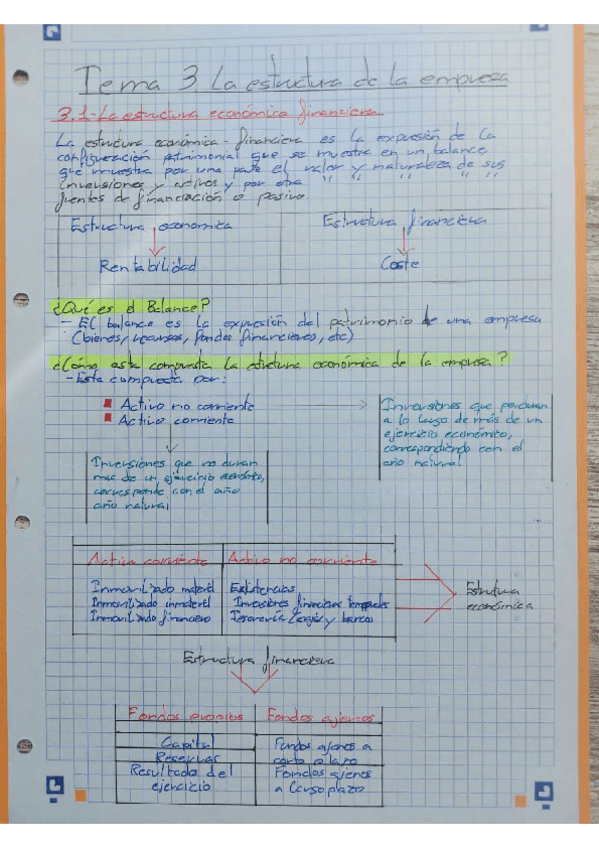 Tema 3 La estructura de la empresa
3.1-La estructura económica financiera
La estructura económica-financiera es la expresión de la
configuración patrimonial que se muestra en un balance
que muestra por una parte el valor y naturaleza de sus
inversiones y activos y por otra " " " " "
fuentes de financiación o pasivo.
Estructura economica
Estructura financiera
Rentabilidad
Coste
¿Qué es el Balance?
- El balance es la expresión del patrimonio de una empresa
(bienes, recursos, fondos financieros, etc)
¿Cómo esta compuesta la estructura económica de la empresa?
- Esta compuesta por:
Activo no corriente
Activo corriente
Inversiones que perduran
a lo largo de más de un
ejercicio económico,
correspondiendo con el
año natural
Inversiones que no duran
mas de un ejercicio económico,
corresponde con el año
año natural
Activo corriente
Activo no corriente
Inmovilizado material
Inmovilizado inmaterial
Inmovilizado financiero
Existencias
Inversiones financieras temporales
Tesorería y bancos
Estrutura
económica
Estructura financiera
Fondos propios
Fondos ajenos
Capital
Reservas
Resultado del
ejercicio
Fondos ajenos a
corto plazo
Fondos ajenos
a largo plazo